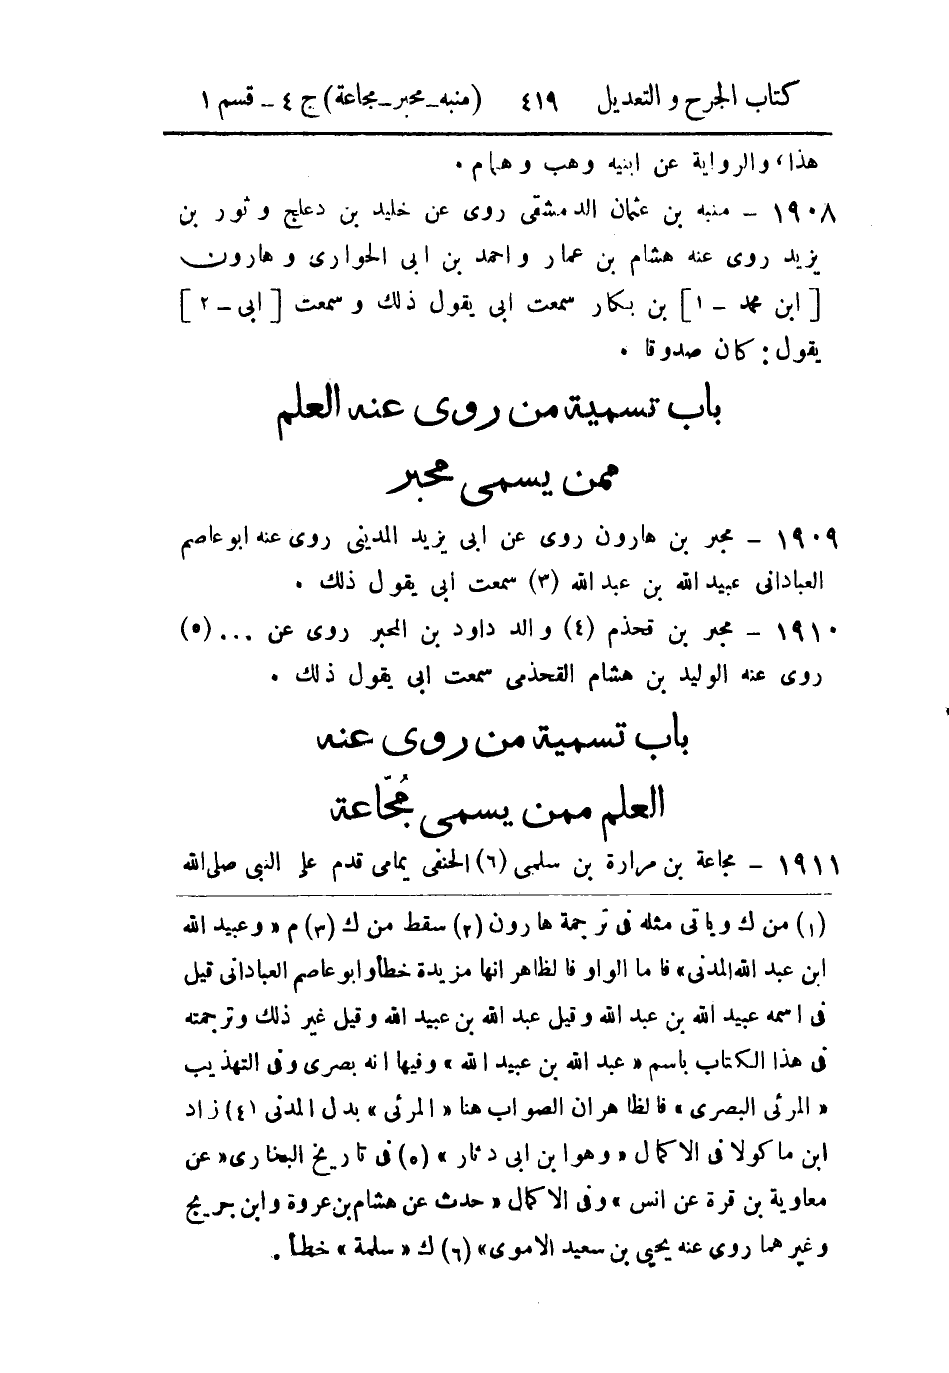 كتاب الجرح والتعديل ٤١٩ (منبه - محبر - مجاعة) ج ٤ - قسم ١
هذا، والرواية عن ابنيه وهب وهمام.
١٩٠٨ - منبه بن عثمان الدمشقى روى عن خليد بن دعلج وثور بن
يزيد روى عنه هشام بن عمار واحمد بن ابى الحوارى وهارون
[ابن محمد - ١] بن بكار سمعت ابى يقول ذلك وسمعت [ابى - ٢]
يقول: كان صدوقا.
باب تسمية من روى عنه العلم
ممن يسمى محبر
١٩٠٩ - محبر بن هارون روى عن ابى يزيد المدينى روى عنه ابو عاصم
العبادانى عبيد الله بن عبد الله (٣) سمعت ابى يقول ذلك.
١٩١٠ - محبر بن قحذم (٤) والد داود بن المحبر روى عن ... (٥)
روى عنه الوليد بن هشام القحذمى سمعت ابى يقول ذلك.
باب تسمية من روى عنه
العلم ممن يسمى مُجّاعة
١٩١١ - مجاعة بن مرارة بن سلمى (٦) الحنفى يمامى قدم على النبى صلى الله
(١) من ك وياتى مثله فى ترجمة هارون (٢) سقط من ك (٣) م « وعبيد الله
ابن عبد الله المدنى» فاما الواو فالظاهر انها مزيدة خطأ وابو عاصم العبادانى قيل
فى اسمه عبيد الله بن عبد الله وقيل عبد الله بن عبيد الله وقيل غير ذلك وترجمته
فى هذا الكتاب باسم « عبد الله بن عبيد الله » وفيها انه بصرى وفى التهذيب
« المرئى البصرى » فالظاهر ان الصواب هنا « المرئى » بدل المدنى (٤) زاد
ابن ماكولا فى الاكمال « وهو ابن ابى دثار » (٥) فى تاريخ البخارى « عن
معاوية بن قرة عن انس » وفى الاكمال « حدث عن هشام بن عروة وابن جريج
وغيرهما روى عنه يحيى بن سعيد الاموى» (٦) ك « سلمة » خطأ.